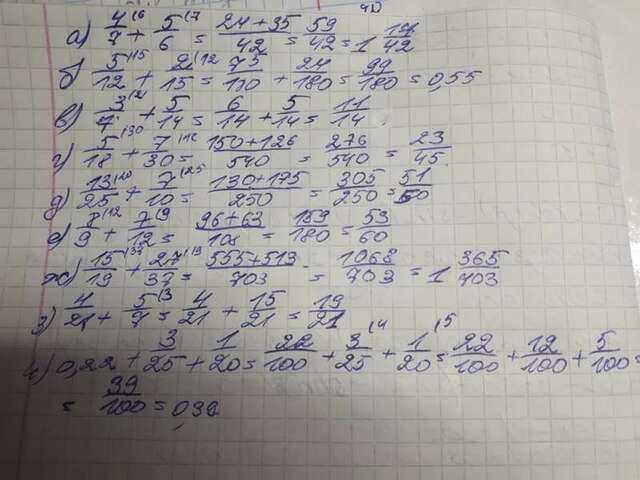 а) 4/7(6 + 5/6(7 = 24+35/42 = 59/42 = 1 17/42
б) 5/12(15 + 2/15(12 = 75/110 + 24/180 = 99/180 = 0,55
в) 3/7(2 + 5/14 = 6/14 + 5/14 = 11/14
г) 5/18(30 + 7/30(18 = 150+126/540 = 276/540 = 23/45
д) 13/25(10 + 7/10(25 = 130+175/250 = 305/250 = 51/50
е) 8/9(12 + 7/12(9 = 96+63/108 = 159/180 = 53/60
ж) 15/19(37 + 27/37(19 = 555+513/703 = 1068/703 = 1 365/703
з) 4/21 + 5/7(3 = 4/21 + 15/21 = 19/21
и) 0,22 + 3/25 + 1/20 = 22/100 + 3/25(4 + 1/20(5 = 22/100 + 12/100 + 5/100 =
= 39/100 = 0,39